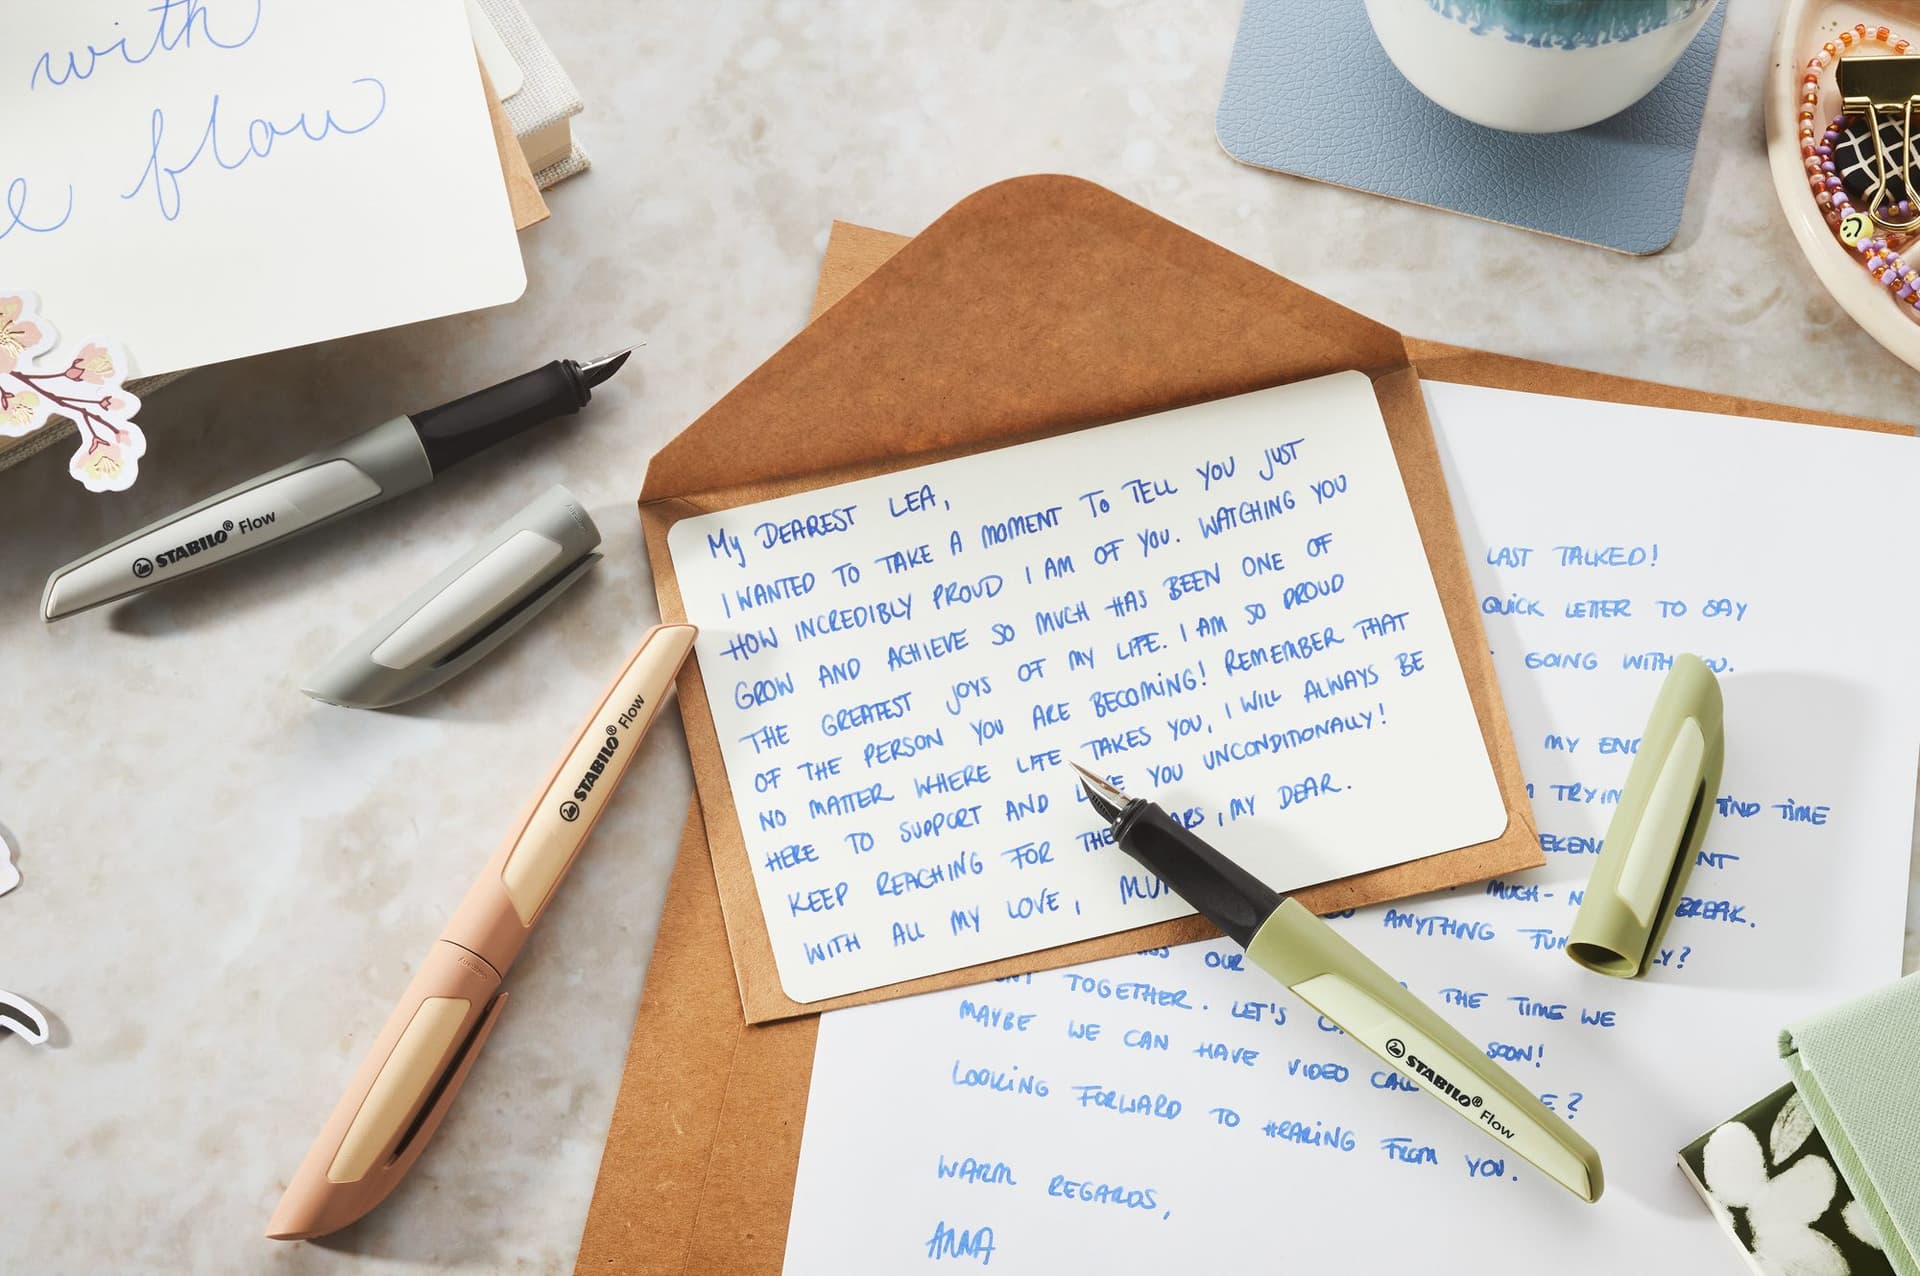 with
e flow
STABILO® Flow
STABILO® Flow
MY DEAREST LEA,
I WANTED TO TAKE A MOMENT TO TELL YOU JUST
HOW INCREDIBLY PROUD I AM OF YOU. WATCHING YOU
GROW AND ACHIEVE SO MUCH HAS BEEN ONE OF
THE GREATEST JOYS OF MY LIFE. I AM SO PROUD
OF THE PERSON YOU ARE BECOMING! REMEMBER THAT
NO MATTER WHERE LIFE TAKES YOU, I WILL ALWAYS BE
HERE TO SUPPORT AND YOU UNCONDITIONALLY!
KEEP REACHING FOR THE , MY DEAR.
WITH ALL MY LOVE,
LAST TALKED!
QUICK LETTER TO SAY
GOING WITH
MY
TIME
MUCH-
BREAK.
ANYTHING
OUR
TOGETHER. LET'S THE TIME WE
MAYBE WE CAN HAVE VIDEO CALL SOON!
LOOKING FORWARD TO HEARING FROM YOU.
WARM REGARDS,
ANNA
STABILO® Flow